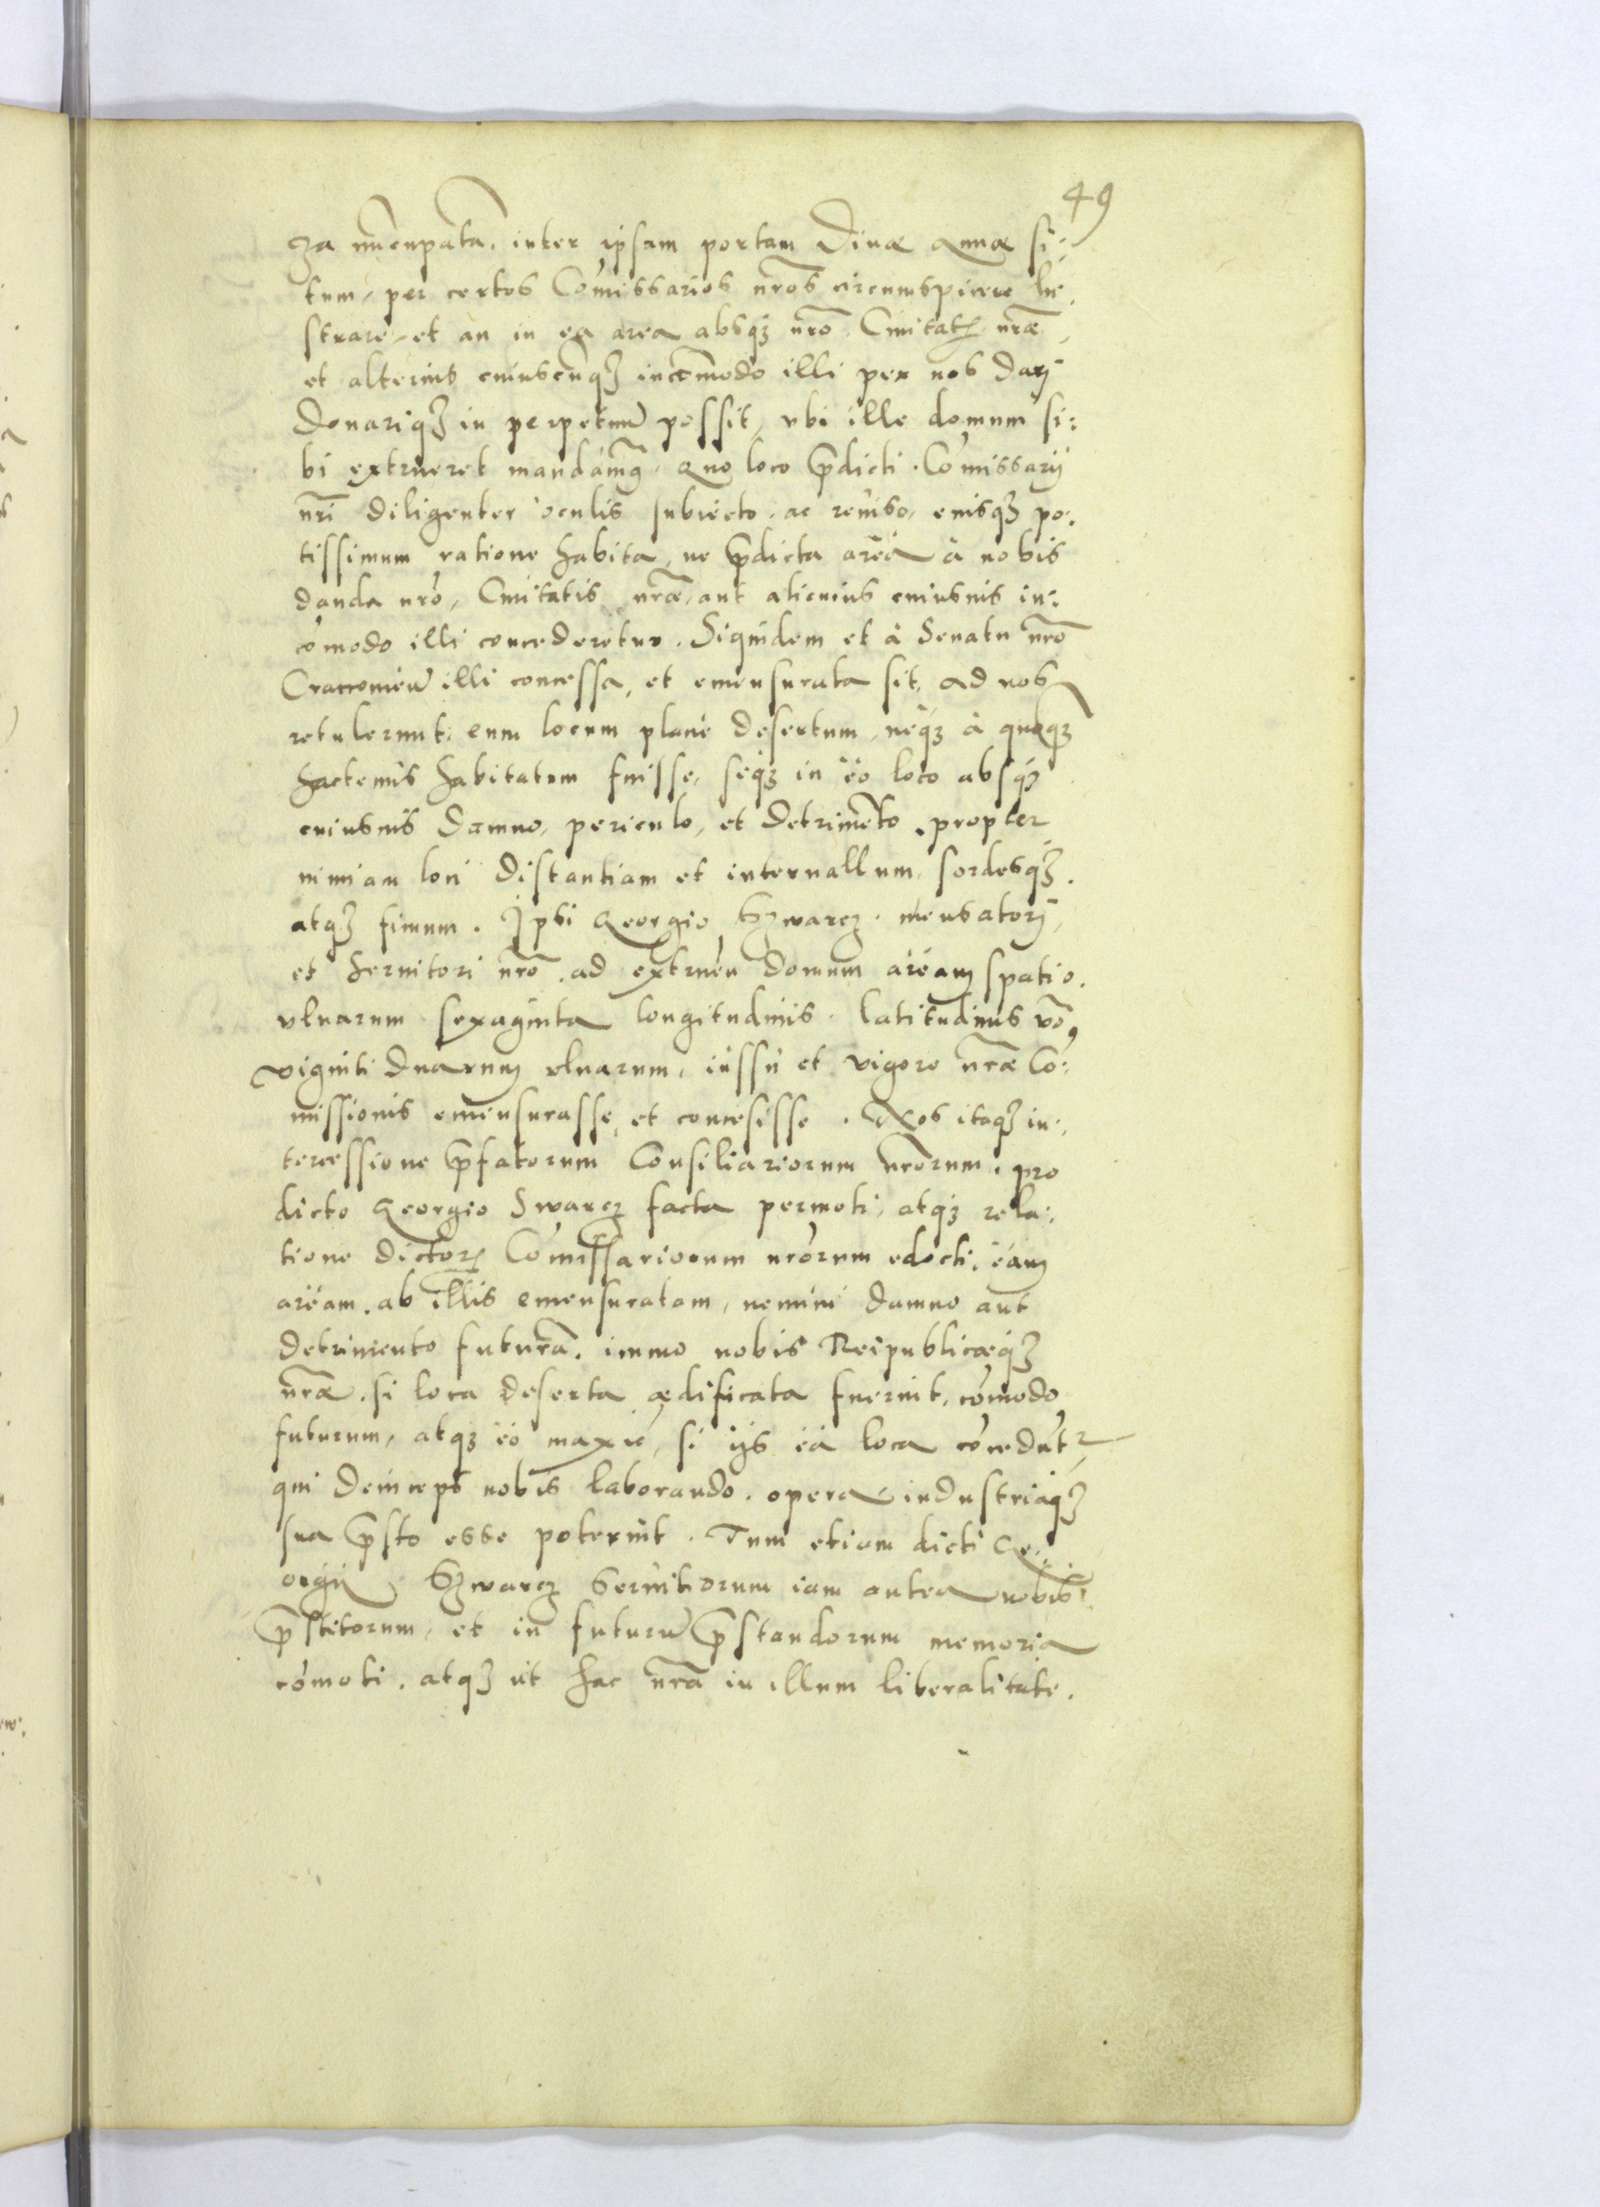 49
za nūcupata, inter ipsam portam Diuæ Annæ si:
tum, per certos Cōmissarios nr̄os circumspicere lu¬
strare, et an in ea area absq₃ nrō Ciuitatꝭ nræ,
et alterius cuiuscunq₃ incōmodo illi per nos dari
donariq₃ in perpetuū possit, vbi ille domum si:
bi extrueret mandāmꝰ. Quo loco p̄dicti Cōmissarij
nr̄i diligenter oculis subiecto ac reuiso, eiusq₃ po:
tissimum ratione habita, ne p̄dicta area à nobis
danda nrō, Ciuitatis nræ, aut alicuius cuiusuis in:
cōmodo illi concederetur. Siquidem et à Senatu nrō
Craccouieñ illi concessa, et emensurata sit, ad nos
retulerunt, eum locum planè desertum, neq₃ à quoq₃
hactenus habitatum fuisse, seq₃ in eo loco absq₃
cuiusuis damno, periculo, et detrimēto, propter
nimiam loci distantiam et interuallum, sordesq₃
atq₃ fimum. Ipsi Georgio Szwarcz mensatori,
et seruitori nrō, ad extrueñ domum aream spatio
vlnarum sexaginta longitudinis, latitudinis vō,
viginti duarum vlnarum, iussu et vigore nræ Cō:
missionis emensurasse, et concesisse. Nos itaq₃ in:
tercessione p̄fatorum Consiliariorum nrōrum, pro
dicto Georgio Swarcz facta permoti, atq₃ rela:
tione dictorꝭ Cōmissariorum nrōrum edocti, eam
aream, ab illis emensuratam, nemini damno aut
detrimento futurā, immo nobis Reipublicæq₃
nræ, si loca deserta ædificata fuerint, cōmodo
futurum, atq₃ eo maxiē, si ijs ea loca cōcedūtr
qui deinceps nobis laborando, opera industriaq₃
sua p̄sto esse poterint. Tum etiam dicti Ge:
orgij Szwarcz seruitiorum iam antea nobis
p̄stitorum, et in futurū p̄standorum memoria
cōmoti, atq₃ ut hac nrā in illum liberalitate.